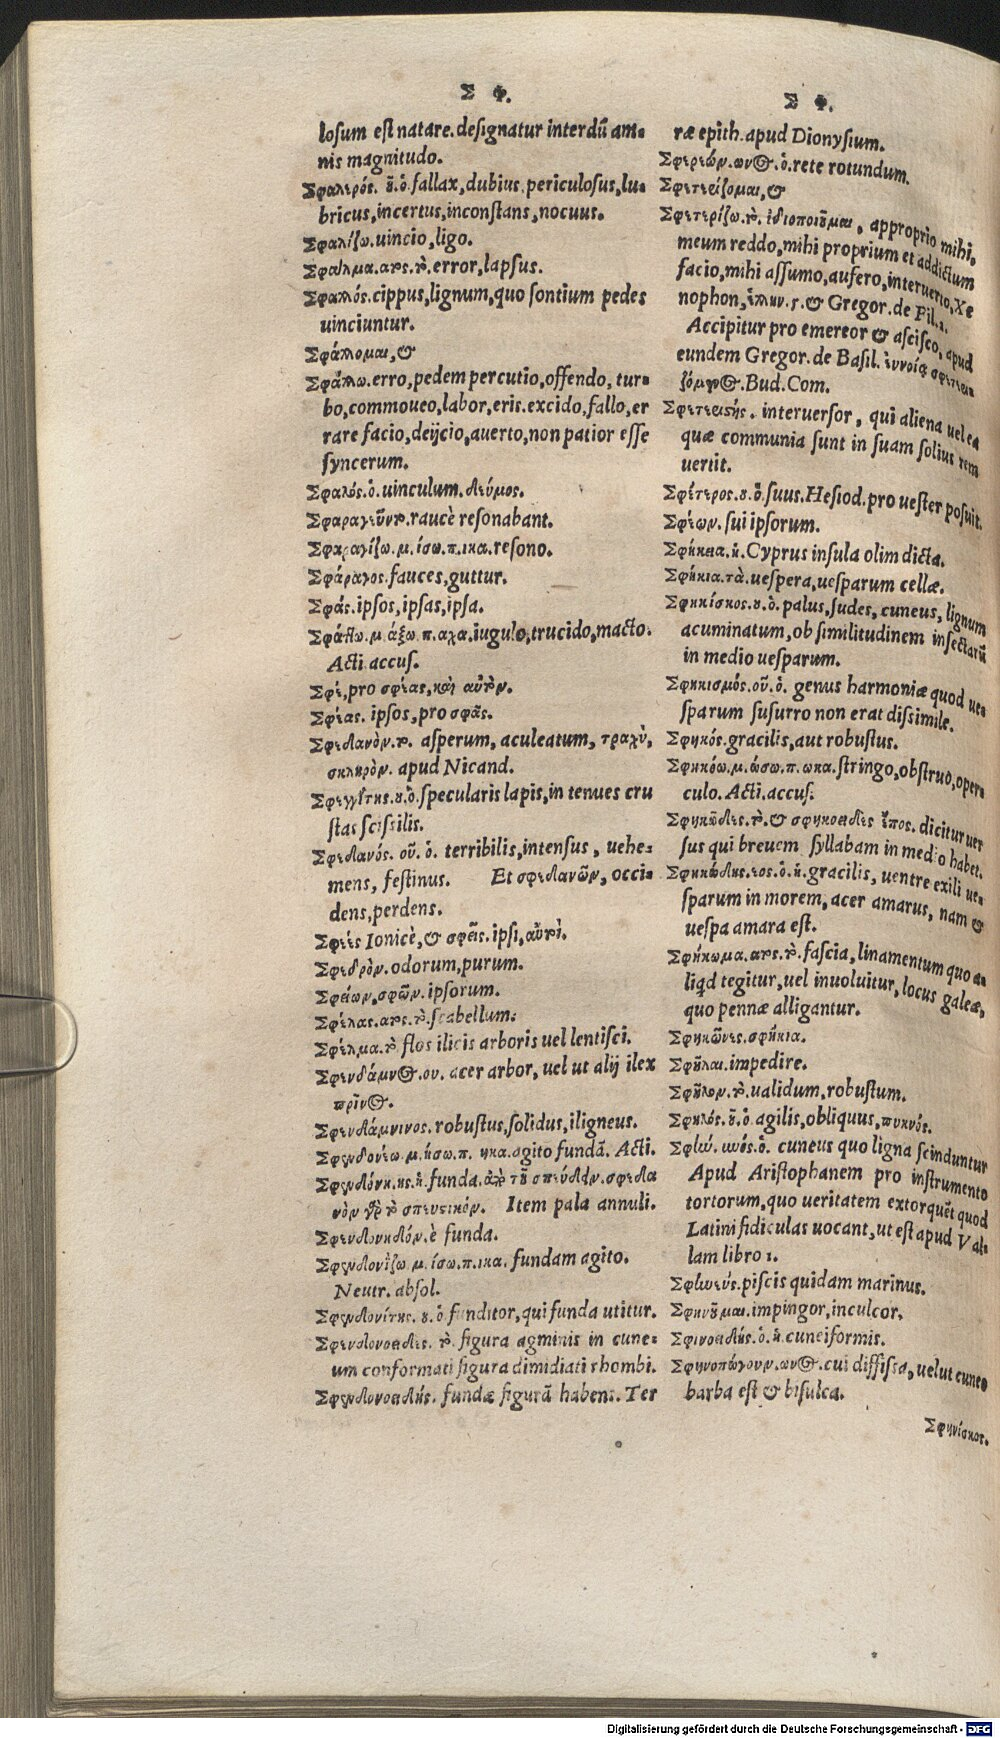 Σ Φ.
losum est natare. designatur interdũ am-
nis magnitudo.
Σφαλερός. ȣ̃.ὁ. fallax, dubius, periculosus, lu-
bricus, incertus, inconstans, nocuus.
Σφαλίζω. uincio, ligo.
Σφάλμα. ατς. τὸ. error, lapsus.
Σφαλλός. cippus, lignum, quo sontium pedes
uinciuntur.
Σφάλλομαι, &
Σφάλλω. erro, pedem percutio, offendo, tur-
bo, commoueo, labor, eris. excido, fallo, er
rare facio, deijcio, auerto, non patior esse
syncerum.
Σφαλός. ὁ. uinculum. δεύμος.
Σφαραγεῦντο. raucè resonabant.
Σφαραγίζω. μ. ίσω. π. ικα. resono.
Σφάραγος. fauces, guttur.
Σφάς. ipsos, ipsas, ipsa.
Σφάτlω. μ. άξω. π. αχα. iugulo, trucido, macto.
Acti. accus.
Σφέ, pro σφέας, καὶ αὐτόν.
Σφέας. ipsos, pro σφᾶς.
Σφεδανὸν. τὸ. asperum, aculeatum, τραχὺ,
σκληρὸν. apud Nicand.
Σφεγγίτης. ȣ.ὁ. specularis lapis, in tenues cru
stas scissilis.
Σφεδανός. οῦ. ὁ. terribilis, intensus, uehe-
mens, festinus. Et σφεδανῶν, occi-
dens, perdens.
Σφεές Ionicè, & σφεῖς. ipsi, αὐτοὶ.
Σφεδρὸν. odorum, purum.
Σφείων, σφῶν. ipsorum.
Σφέλας. ατς. τὸ. scabellum.
Σφέλμα. τὸ flos ilicis arboris uel lentisci.
Σφενδάμνος. ου. acer arbor, uel ut alij ilex
πρῖνος.
Σφενδάμνινος. robustus, solidus, iligneus.
Σφενδονέω. μ. ήσω. π. ηκα. agito fundã. Acti.
Σφενδόνη. ης. ἡ. funda. ἀπὸ τȣ̃ σπεύδειν. σφεδα
νὸν γὰρ τὸ σπευστικόν. Item pala annuli.
Σφενδονηδόν. è funda.
Σφενδονίζω μ. ίσω. π. ικα. fundam agito.
Neutr. absol.
Σφενδονίτης. ȣ.ὁ funditor, qui funda utitur.
Σφενδονοειδές. τὸ. figura agminis in cune-
um conformati figura dimidiati rhombi.
Σφενδονοειδής. fundæ figurã habens. Ter
Σ Φ.
ræ epith. apud Dionysium.
Σφεριών. ωνος. ὁ. rete rotundum.
Σφετερίζομαι, &
Σφετερίζω. τὸ. ἰδιοποιοῦμαι, approprio mihi,
meum reddo, mihi proprium et addictum
facio, mihi assumo, aufero, interuerto, Xe
nophon, ἑλλην. ς. & Gregor. de Fil. 1.
Accipitur pro emereor & ascisco, apud
eundem Gregor. de Basil. εὐνοίας σφετερι-
ζόμενος. Bud. Com.
Σφετεριστής. interuersor, qui aliena uel ea
quæ communia sunt in suam solius rem
uertit.
Σφέτερος. ȣ. ὁ. suus. Hesiod. pro uester posuit.
Σφέων. sui ipsorum.
Σφήκεια. ἡ. Cyprus insula olim dicta.
Σφήκια. τὰ. uespera, uesparum cellæ.
Σφηκίσκος. ȣ. ὁ. palus, sudes, cuneus, lignum
acuminatum, ob similitudinem insectarũ
in medio uesparum.
Σφηκισμός. οῦ. ὁ. genus harmoniæ quod ue-
sparum susurro non erat dissimile.
Σφηκός. gracilis, aut robustus.
Σφηκόω. μ. ώσω. π. ωκα. stringo, obstruo, oper-
culo. Acti. accus.
Σφηκῶδες. τὸ. & σφηκοειδὲς ἔπος. dicitur uer
sus qui breuem syllabam in medio habet.
Σφηκώδης. εος. ὁ. ἡ. gracilis, uentre exili ue-
sparum in morem, acer amarus, nam &
uespa amara est.
Σφήκωμα. ατς. τὸ. fascia, linamentum quo a-
liqd tegitur, uel inuoluitur, locus galeæ,
quo pennæ alligantur.
Σφηκῶνες. σφήκια.
Σφῆλαι. impedire.
Σφῆλον. τὸ. ualidum, robustum.
Σφηλός. ȣ̃. ὁ agilis, obliquus, πυκνός.
Σφὼ. ωός. ὁ. cuneus quo ligna scinduntur
Apud Aristophanem pro instrumento
tortorum, quo ueritatem extorquẽt quod
Latini fidiculas uocant, ut est apud Val-
lam libro 1.
Σφωεύς. piscis quidam marinus.
Σφηνȣ̃μαι. impingor, inculcor.
Σφηνοειδής. ὁ. ἡ. cuneiformis.
Σφηνοπώγων. ωνος. cui diffissa, uelut cuneo
barba est & bisulca.
Σφηνίσκος.
Digitalisierung gefördert durch die Deutsche Forschungsgemeinschaft - DFG